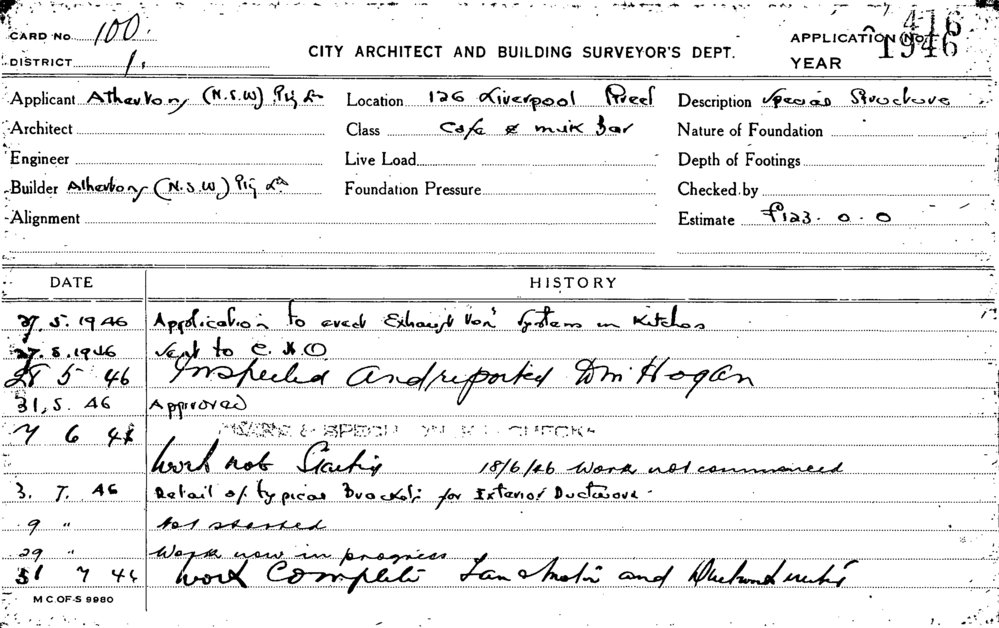 CARD No. 100.
APPLICATION No. 416
1946
DISTRICT 1.
CITY ARCHITECT AND BUILDING SURVEYOR'S DEPT.
YEAR
Applicant Athertons (N.S.W) Pty Ltd
Location 126 Liverpool Street
Description Special Structure
Architect
Class Cafe & milk Bar
Nature of Foundation
Engineer
Live Load
Depth of Footings
Builder Athertons (N.S.W.) Pty Ltd
Foundation Pressure
Checked by
Alignment
Estimate £123. 0. 0
DATE HISTORY
27. 5. 1946 Application to erect Exhaust Ven System in Kitchen
27. 5. 1946 Sent to C.H.O
28 5 46 Inspected and reported Hogan
31. 5. 46 Approved
7 6 46 CHECKED
Work not Started 18/6/46 Work not commenced
3. 7. 46 Detail of typical Bracket for Exterior Ductwork.
9 " Not started
29 " Work now in progress
31 7 46 Work Complete Fan and
M C. OF. S 9980